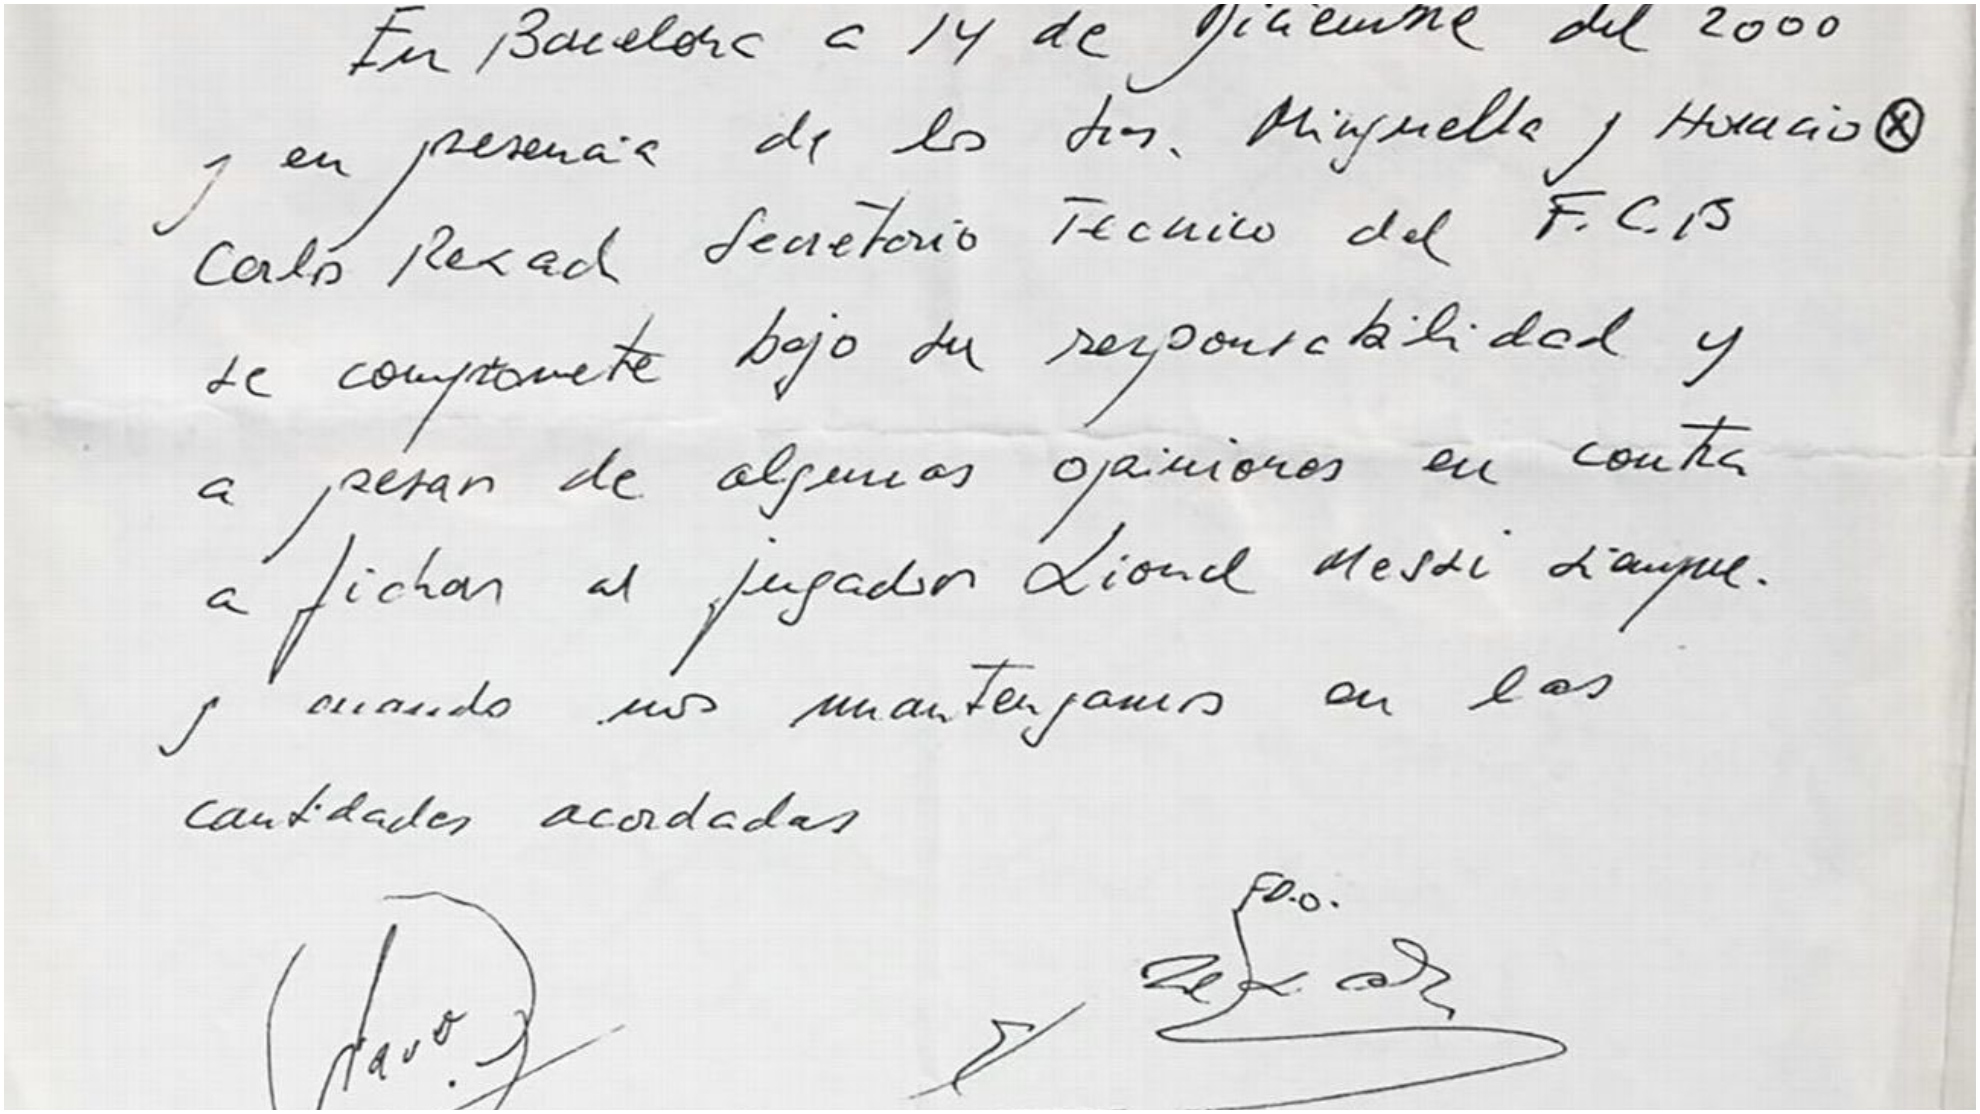 En Barcelona a 14 de Diciembre del 2000
y en presencia de los Srs. Minguella y Horacio ⊗
Carlos Rexach Secretario Tecnico del F.C.B
se compromete bajo su responsabilidad y
a pesar de algunas opiniones en contra
a fichar al jugador Lionel Messi siempre.
y cuando nos mantengamos en las
cantidades acordadas
FDO.